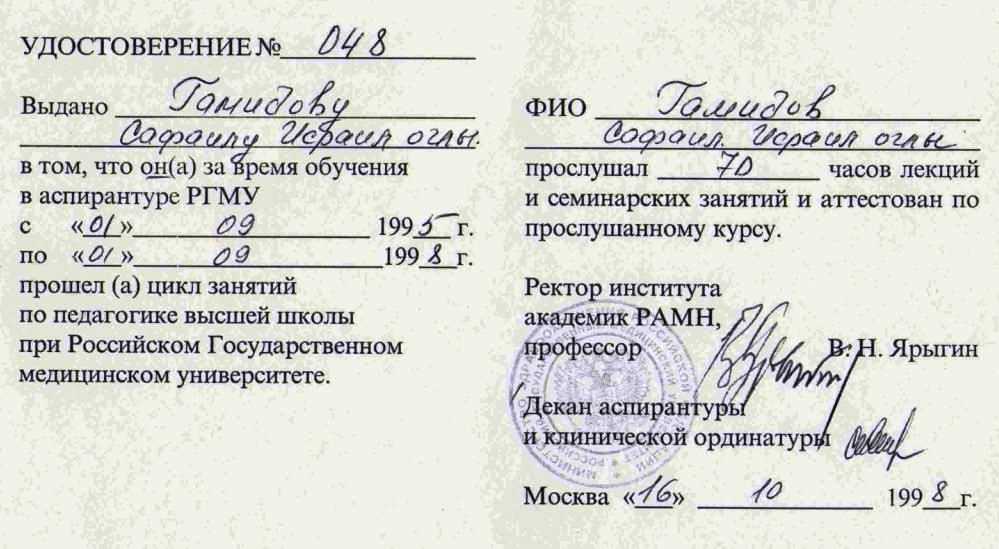 УДОСТОВЕРЕНИЕ № 048
Выдано Гамидову
Сафаилу Исраил оглы.
в том, что он(а) за время обучения
в аспирантуре РГМУ
с «01» 09 1995 г.
по «01» 09 1998 г.
прошел (а) цикл занятий
по педагогике высшей школы
при Российском Государственном
медицинском университете.
ФИО Гамидов
Сафаил. Исраил оглы
прослушал 70 часов лекций
и семинарских занятий и аттестован по
прослушанному курсу.
Ректор института
академик РАМН,
профессор В. Н. Ярыгин
Декан аспирантуры
и клинической ординатуры
Москва «16» 10 1998 г.